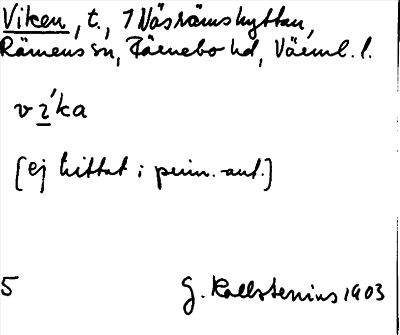 Viken, t., 1 Näsrämshyttan,
Rämens sn, Färnebo hd, Värml. l.
vi´ka
[ej hittat i prim.-aut.]
5 G. Kallstenius 1903